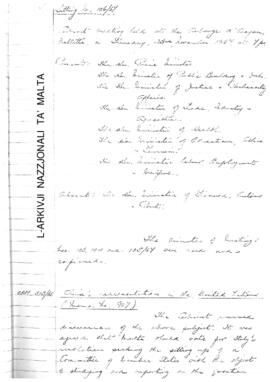 Sitting No. 126/64
Cabinet meeting held at the Auberge d'Aragon,
Valletta on Tuesday, November 1964 at
Present: The Hon. Prime Minister
The Hon. Minister of Public Building &
The Hon. Minister of Justice & Parliamentary
Affairs
The Hon. Minister of Trade, Industry &
Agriculture
The Hon. Minister of Health
The Hon. Minister of Education, Culture
& Tourism
The Hon. Minister Labour, Employment
& Welfare
Absent: The Hon. Minister of Finance, Customs
& Ports
The Minutes of Meetings
Nos. and were read and
confirmed.
China's representation in the United Nations
(Memo. No. )
The Cabinet resumed
discussion of the above subject. It was
agreed that Malta should vote for Italy's
resolution seeking the setting up of a
Committee of Member States with the object
of studying and reporting on the question
L-ARKIVJI NAZZJONALI TA' MALTA